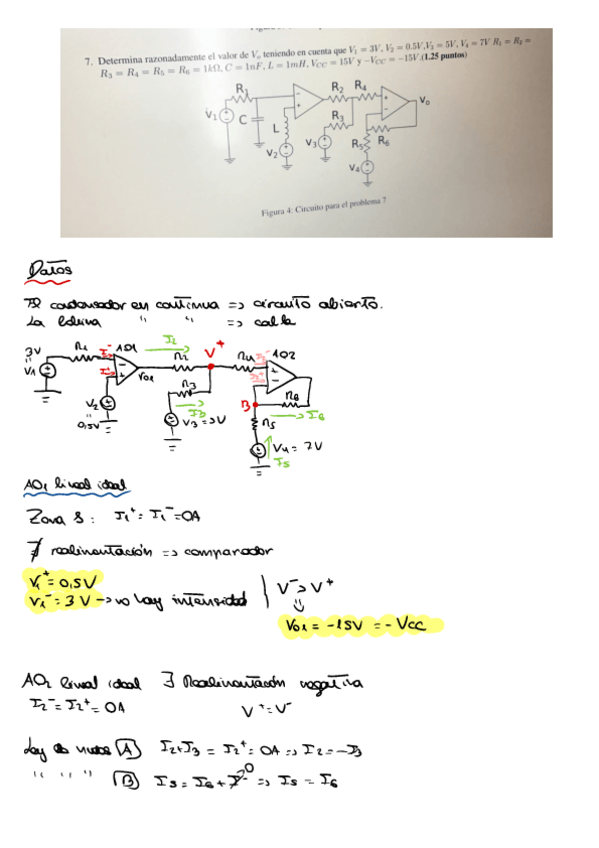 7. Determina razonadamente el valor de Vo teniendo en cuenta que V1 = 3V, V2 = 0.5V, V3 = 5V, V4 = 7V R1 = R2 =
R3 = R4 = R5 = R6 = 1kΩ, C = 1nF, L = 1mH, VCC = 15V y −VCC = −15V.(1.25 puntos)
R1
R2 R4
V1 C
L
R3
Vo
V2
V3
R5 R6
V4
Figura 4: Circuito para el problema 7
Datos
El condensador en continua => circuito abierto.
La bobina " " => cable
3V
V1
R1
I-
I+
AO1
Vo1
I2
R2
V+
R4
AO2
V2
0,5V
R3
I3
V3 = 5V
B
R6
I6
R5
V4 = 7V
I5
AO1 lineal ideal
I1+ = I1- = 0A
∄ realimentación => comparador
V1+ = 0,5V
V1- = 3V -> no hay intensidad
V- > V+
Vo1 = -15V = -Vcc
AO2 lineal ideal ∃ Realimentación negativa
I2- = I2+ = 0A V+ = V-
Ley de nudos A I2+I3 = I2+ = 0A => I2 = -I3
" " " B I5 = I6 + I-0 => I5 = I6